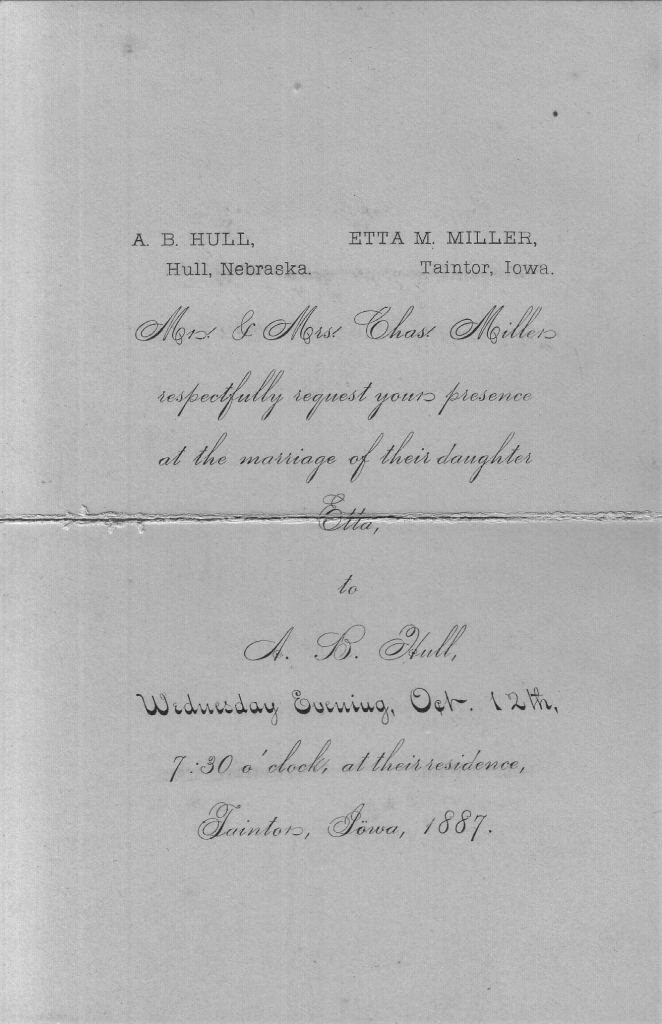 A. B. HULL, ETTA M. MILLER,
Hull, Nebraska. Taintor, Iowa.
Mr. & Mrs. Chas. Miller
respectfully request your presence
at the marriage of their daughter
Etta,
to
A. B. Hull,
Wednesday Evening, Oct. 12th,
7:30 o'clock, at their residence,
Taintor, Iowa, 1887.